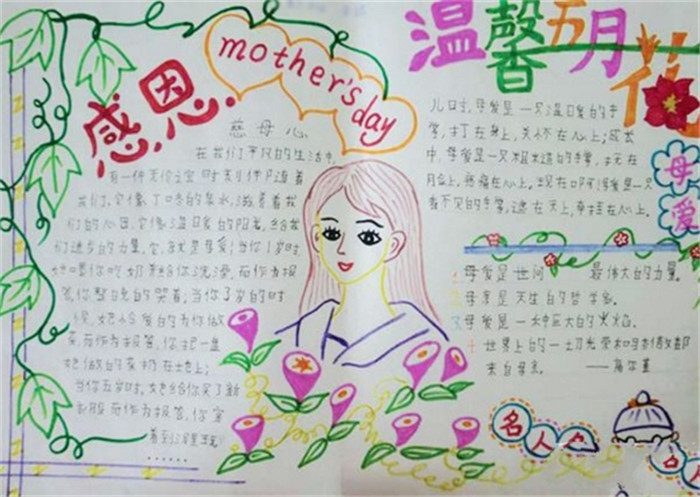 感恩
mother's day
温馨五月花
慈母心
在我们平凡的生活中,
有一件无价之宝时刻伴随着
我们,它像丁冬的泉水,滋养着我
们的心田,它像温暖的阳光,给我
们进步的力量,它就是母爱!当你1岁时
她喂你吃奶并给你洗澡,而作为报
答,你整晚的哭着;当你3岁的时
候,她怜爱的为你做
菜,而作为报答,你把一盘
她做的菜扔在地上;
当你五岁时,她给你买了新
衣服,而作为报答,你穿
着到
……
儿时,母爱是一只温暖的手
掌,打在身上,关怀在心上;成长
中,母爱是一只粗糙的手掌,抚在
上,疼痛在心上,现在啊,母爱是一只
看不见的手掌,遮在天上,牵挂在心上。
母爱
1 母爱是世间最伟大的力量。
2 母亲是天生的哲学家。
3 母爱是一种巨大的火焰。
4 世界上的一切光荣和骄傲都
来自母亲 ——高尔基
名人名言